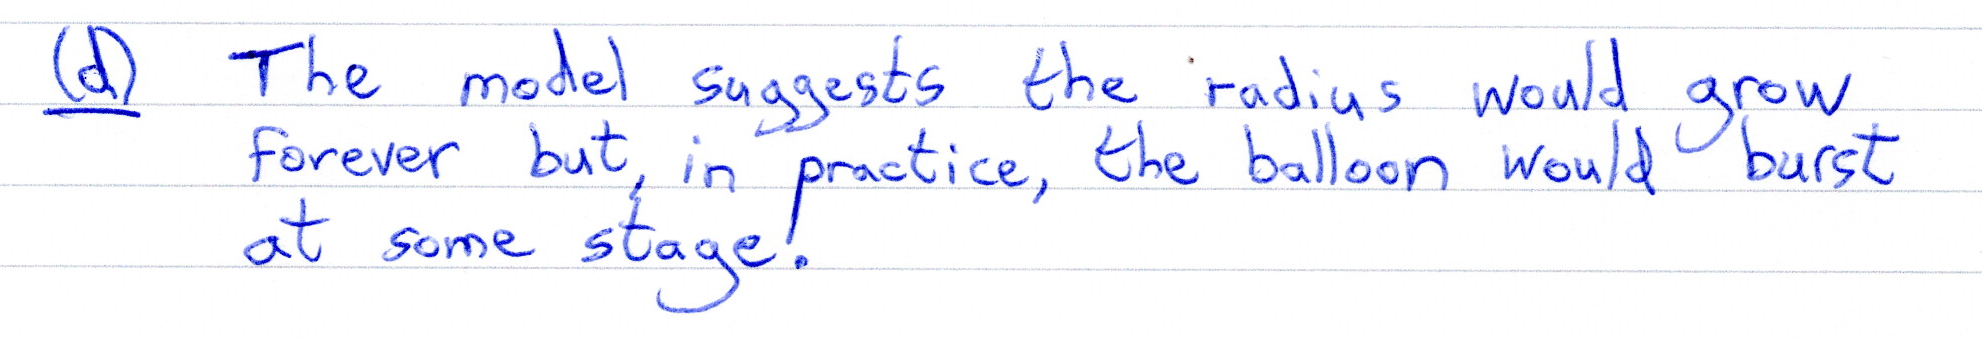 (d) The model suggests the radius would grow
forever but, in practice, the balloon would burst
at some stage!